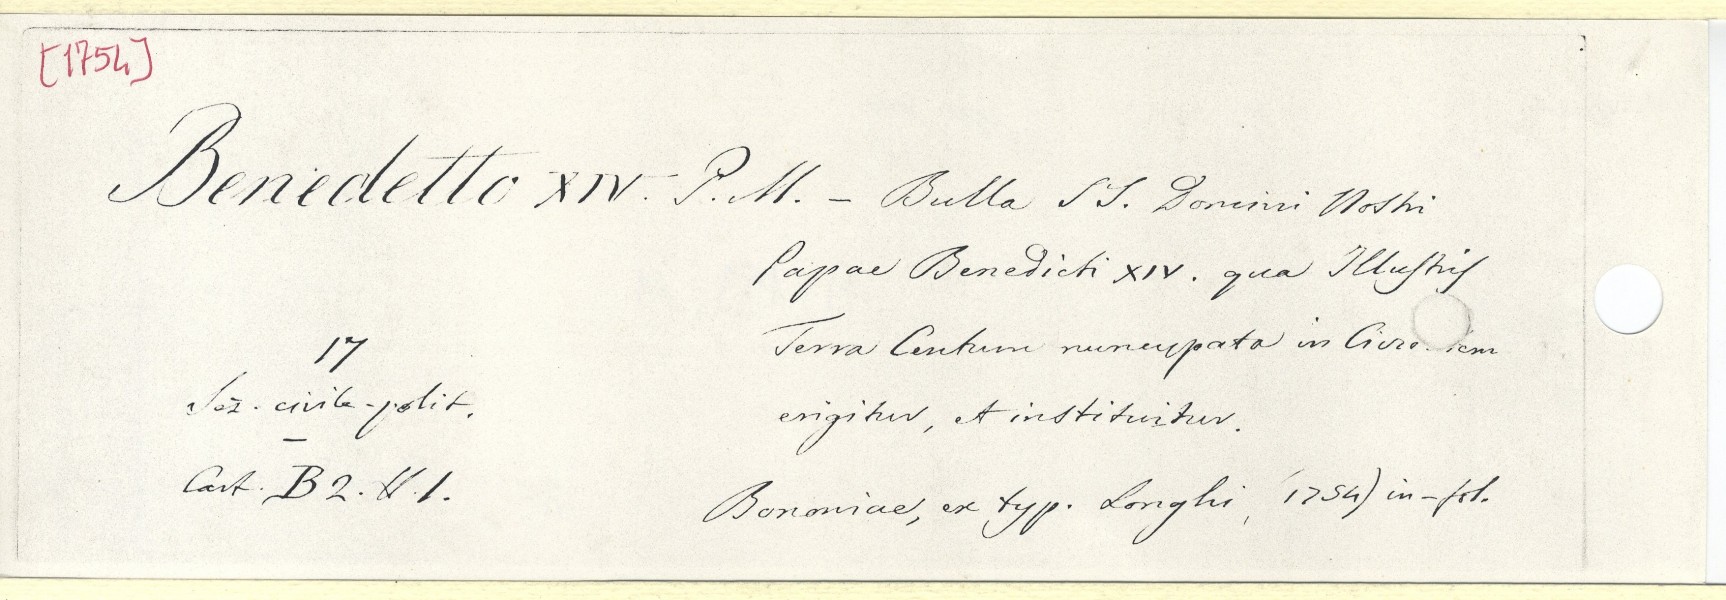 [1754]
Benedetto XIV. P. M. - Bulla SS. Domini Nostri
Papae Benedicti XIV. qua Illustris
Terra Centum nuncupata in
erigitur, et instituitur.
17
Sez. civile-polit.
Cart. B 2. N. 1.
Bononiae, ex typ. Longhi, (1754) in-fol.